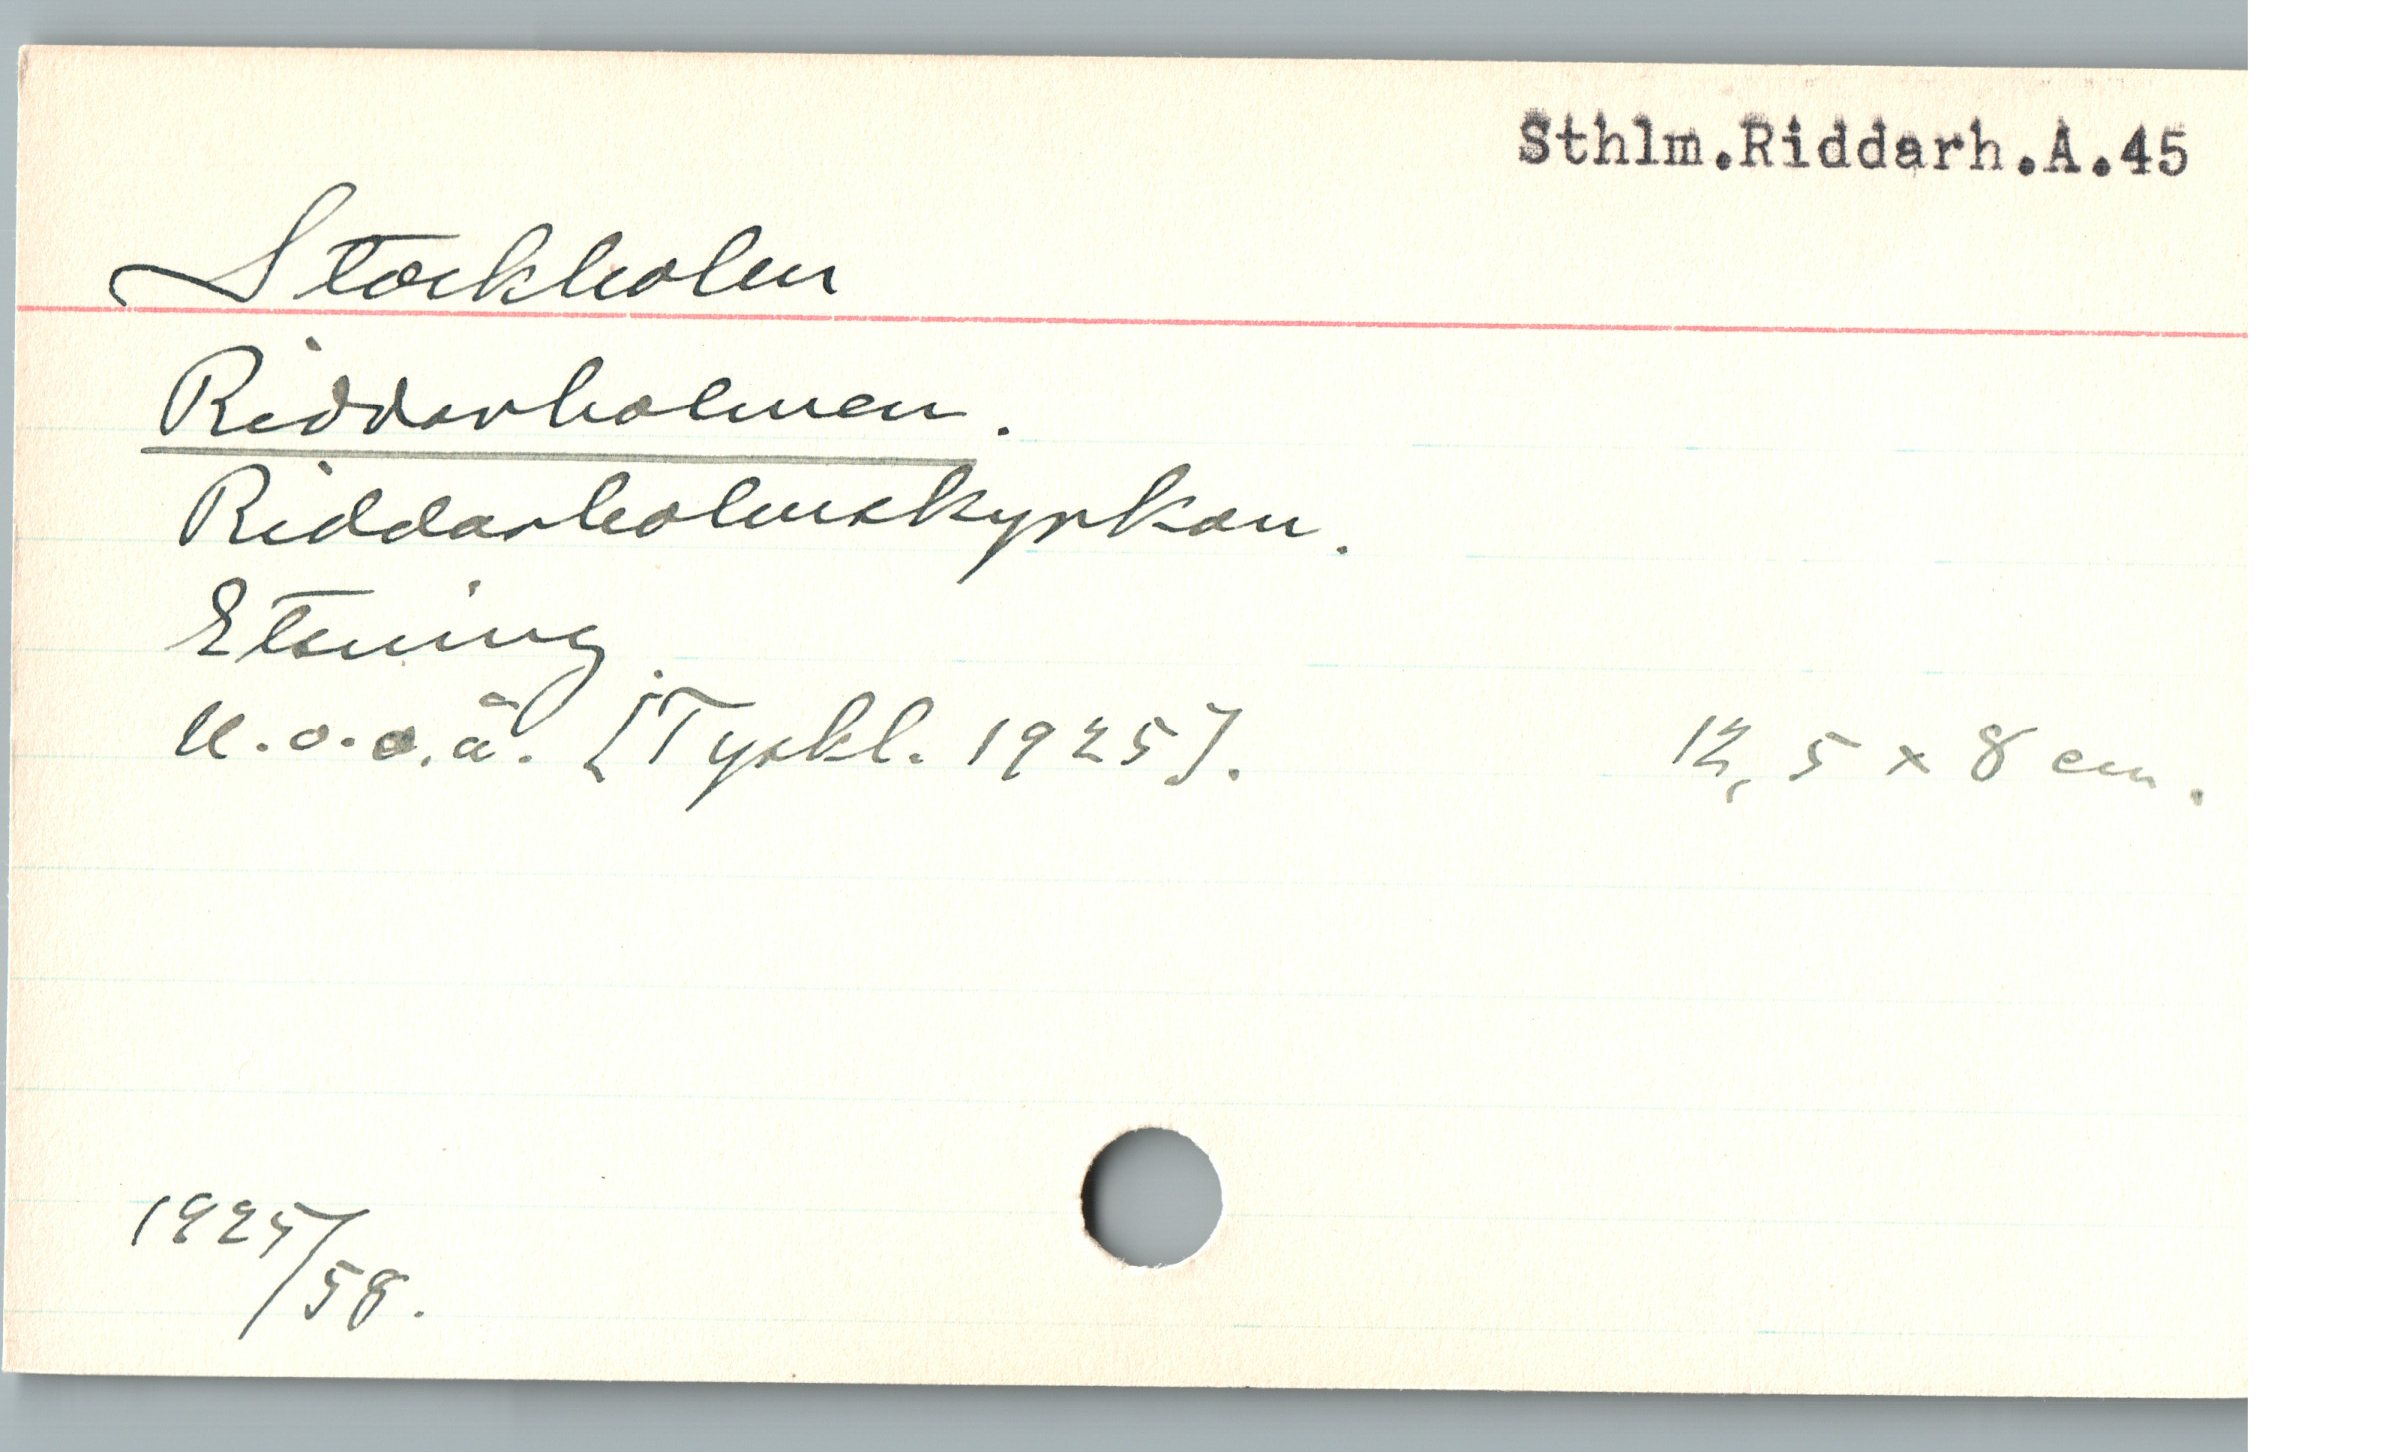 Sthlm.Riddarh.A.45
Stockholm
Riddarholmen.
Riddarholmskyrkan.
Etsning.
U.o.o.å. [Tyskl. 1925]. 12,5 x 8 cm.
1925/58.